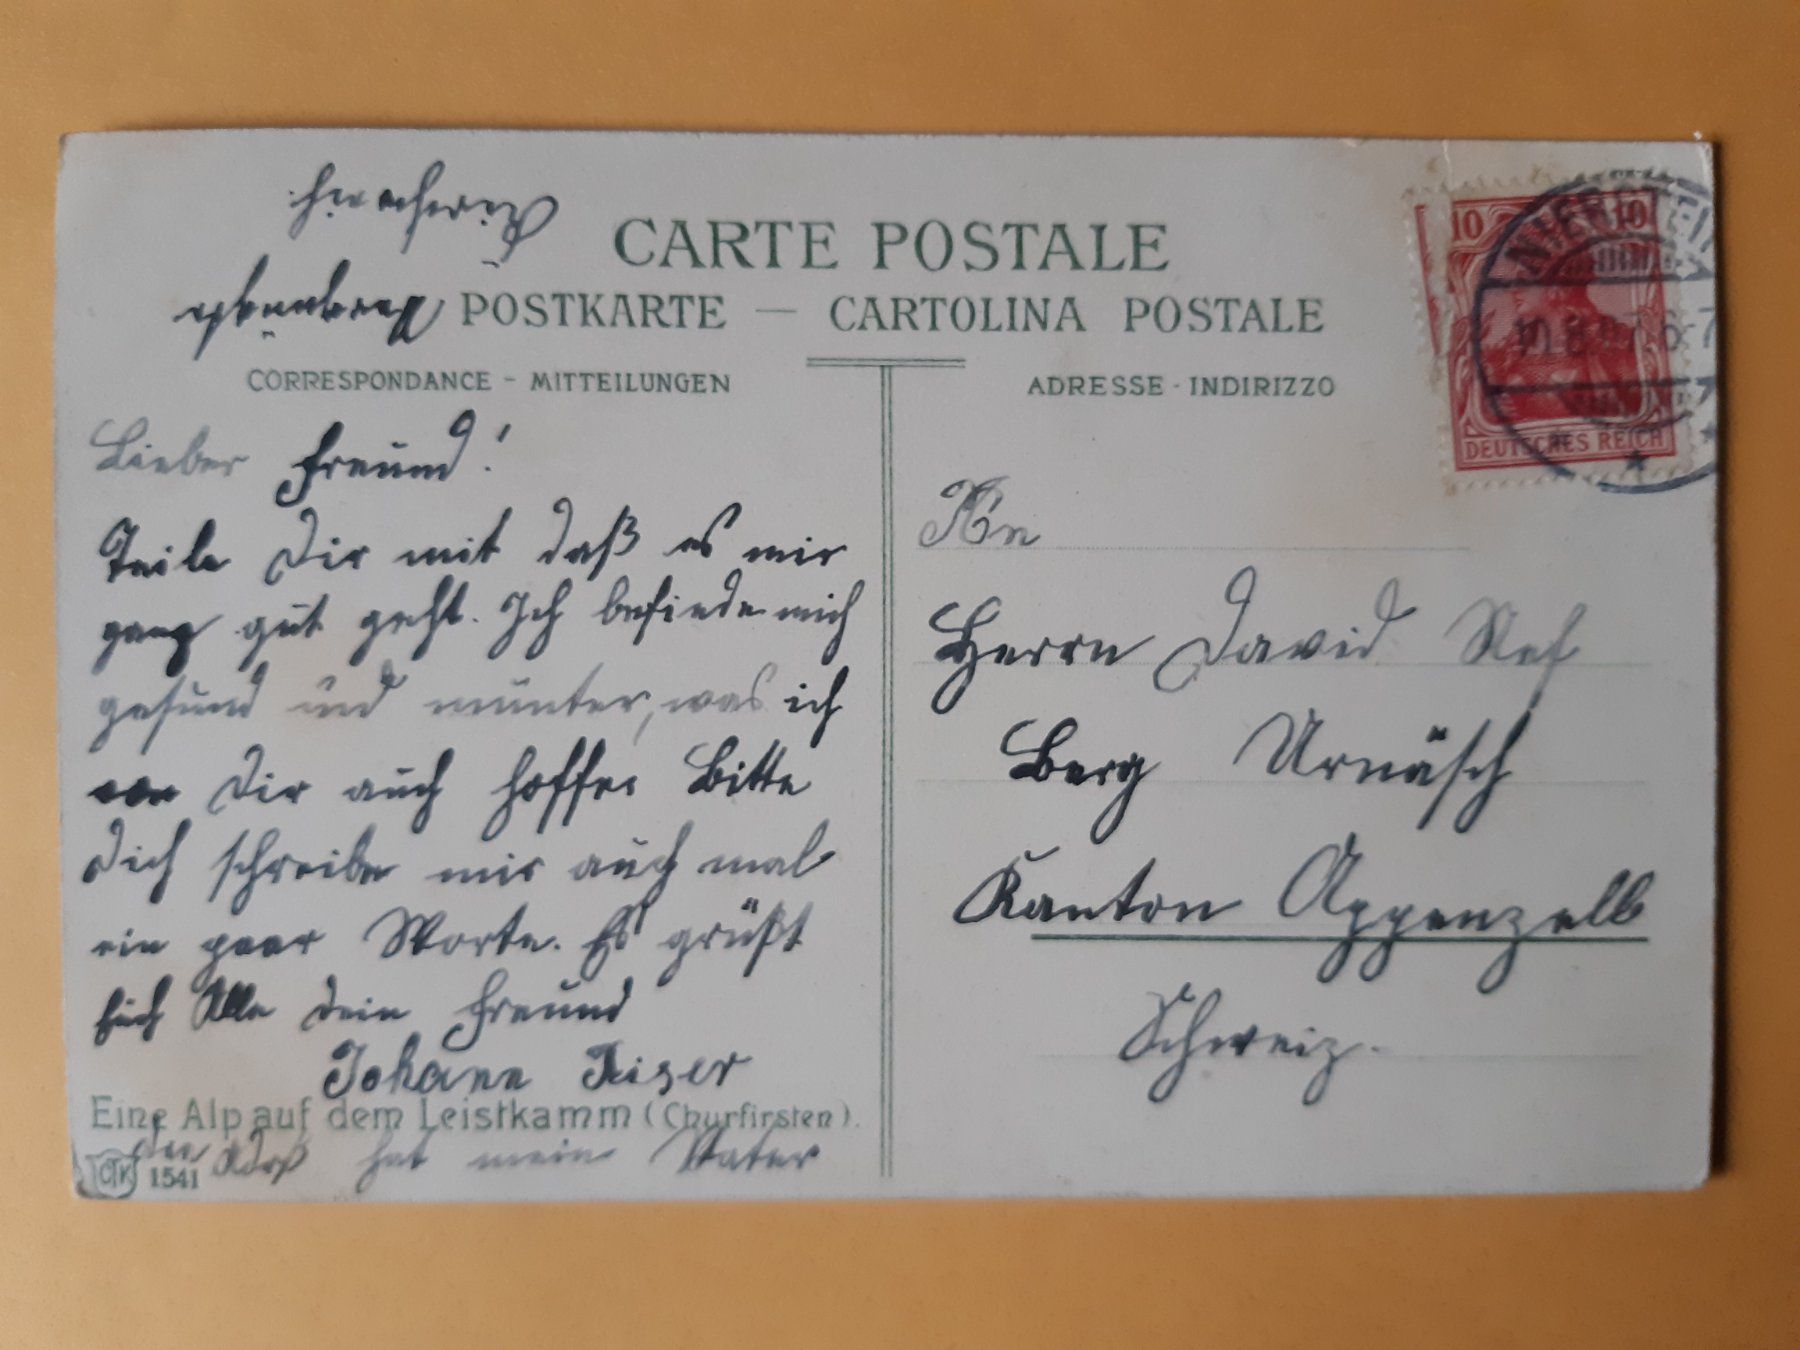 CARTE POSTALE
POSTKARTE — CARTOLINA POSTALE
CORRESPONDANCE - MITTEILUNGEN
ADRESSE - INDIRIZZO
10 10
DEUTSCHES REICH
NIERSTEIN
Lieber Freund!
Teile Dir mit daß es mir
ganz gut geht. Ich befinde mich
gesund und munter, was ich
von Dir auch hoffe. Bitte
Dich schreibe mir auch mal
ein paar Worte. Es grüßt
Euch Alle dein Freund
Johann
Eine Alp auf dem Leistkamm (Churfirsten).
hat mein Vater
CTK 1541
An
Herrn David Nef
Berg Urnäsch
Kanton Appenzell
Schweiz.